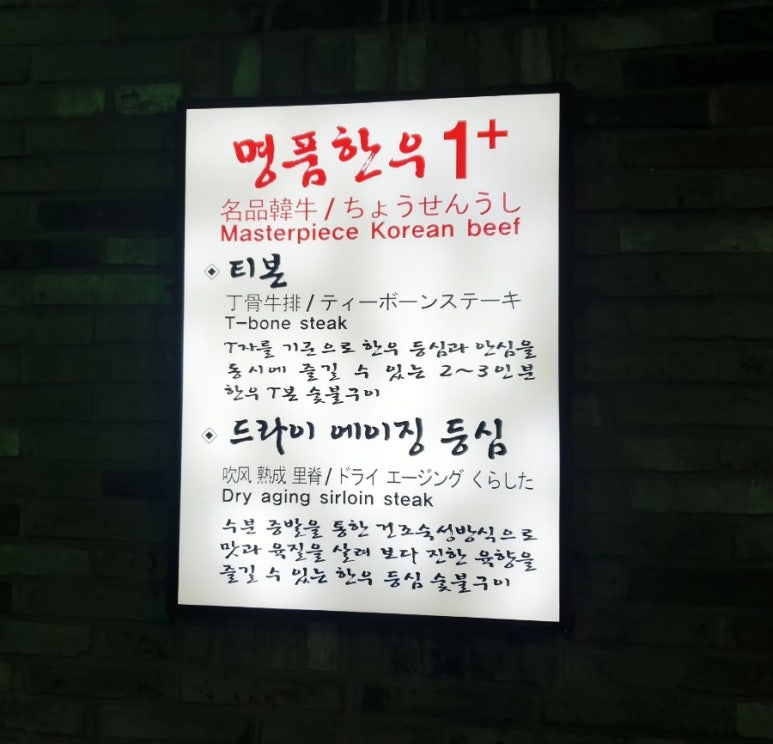 명품한우 1+
名品韓牛 / ちょうせんうし
Masterpiece Korean beef
티본
丁骨牛排 / ティーボーンステーキ
T-bone steak
T자를 기준으로 한우 등심과 안심을
동시에 즐길 수 있는 2~3인분
한우 T본 숯불구이
드라이 에이징 등심
吹风 熟成 里脊 / ドライ エージング くらした
Dry aging sirloin steak
수분 증발을 통한 건조숙성방식으로
맛과 육질을 살려 보다 진한 육향을
즐길 수 있는 한우 등심 숯불구이